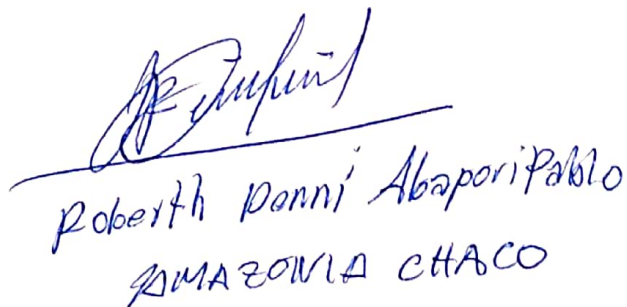 Roberth Danni Abapori Pablo
AMAZONIA CHACO